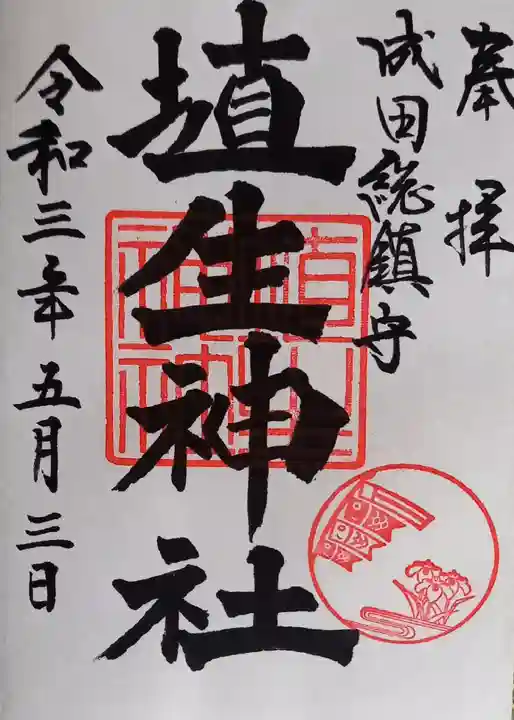 奉拝
成田総鎮守
埴生神社
令和三年五月三日
埴生神社